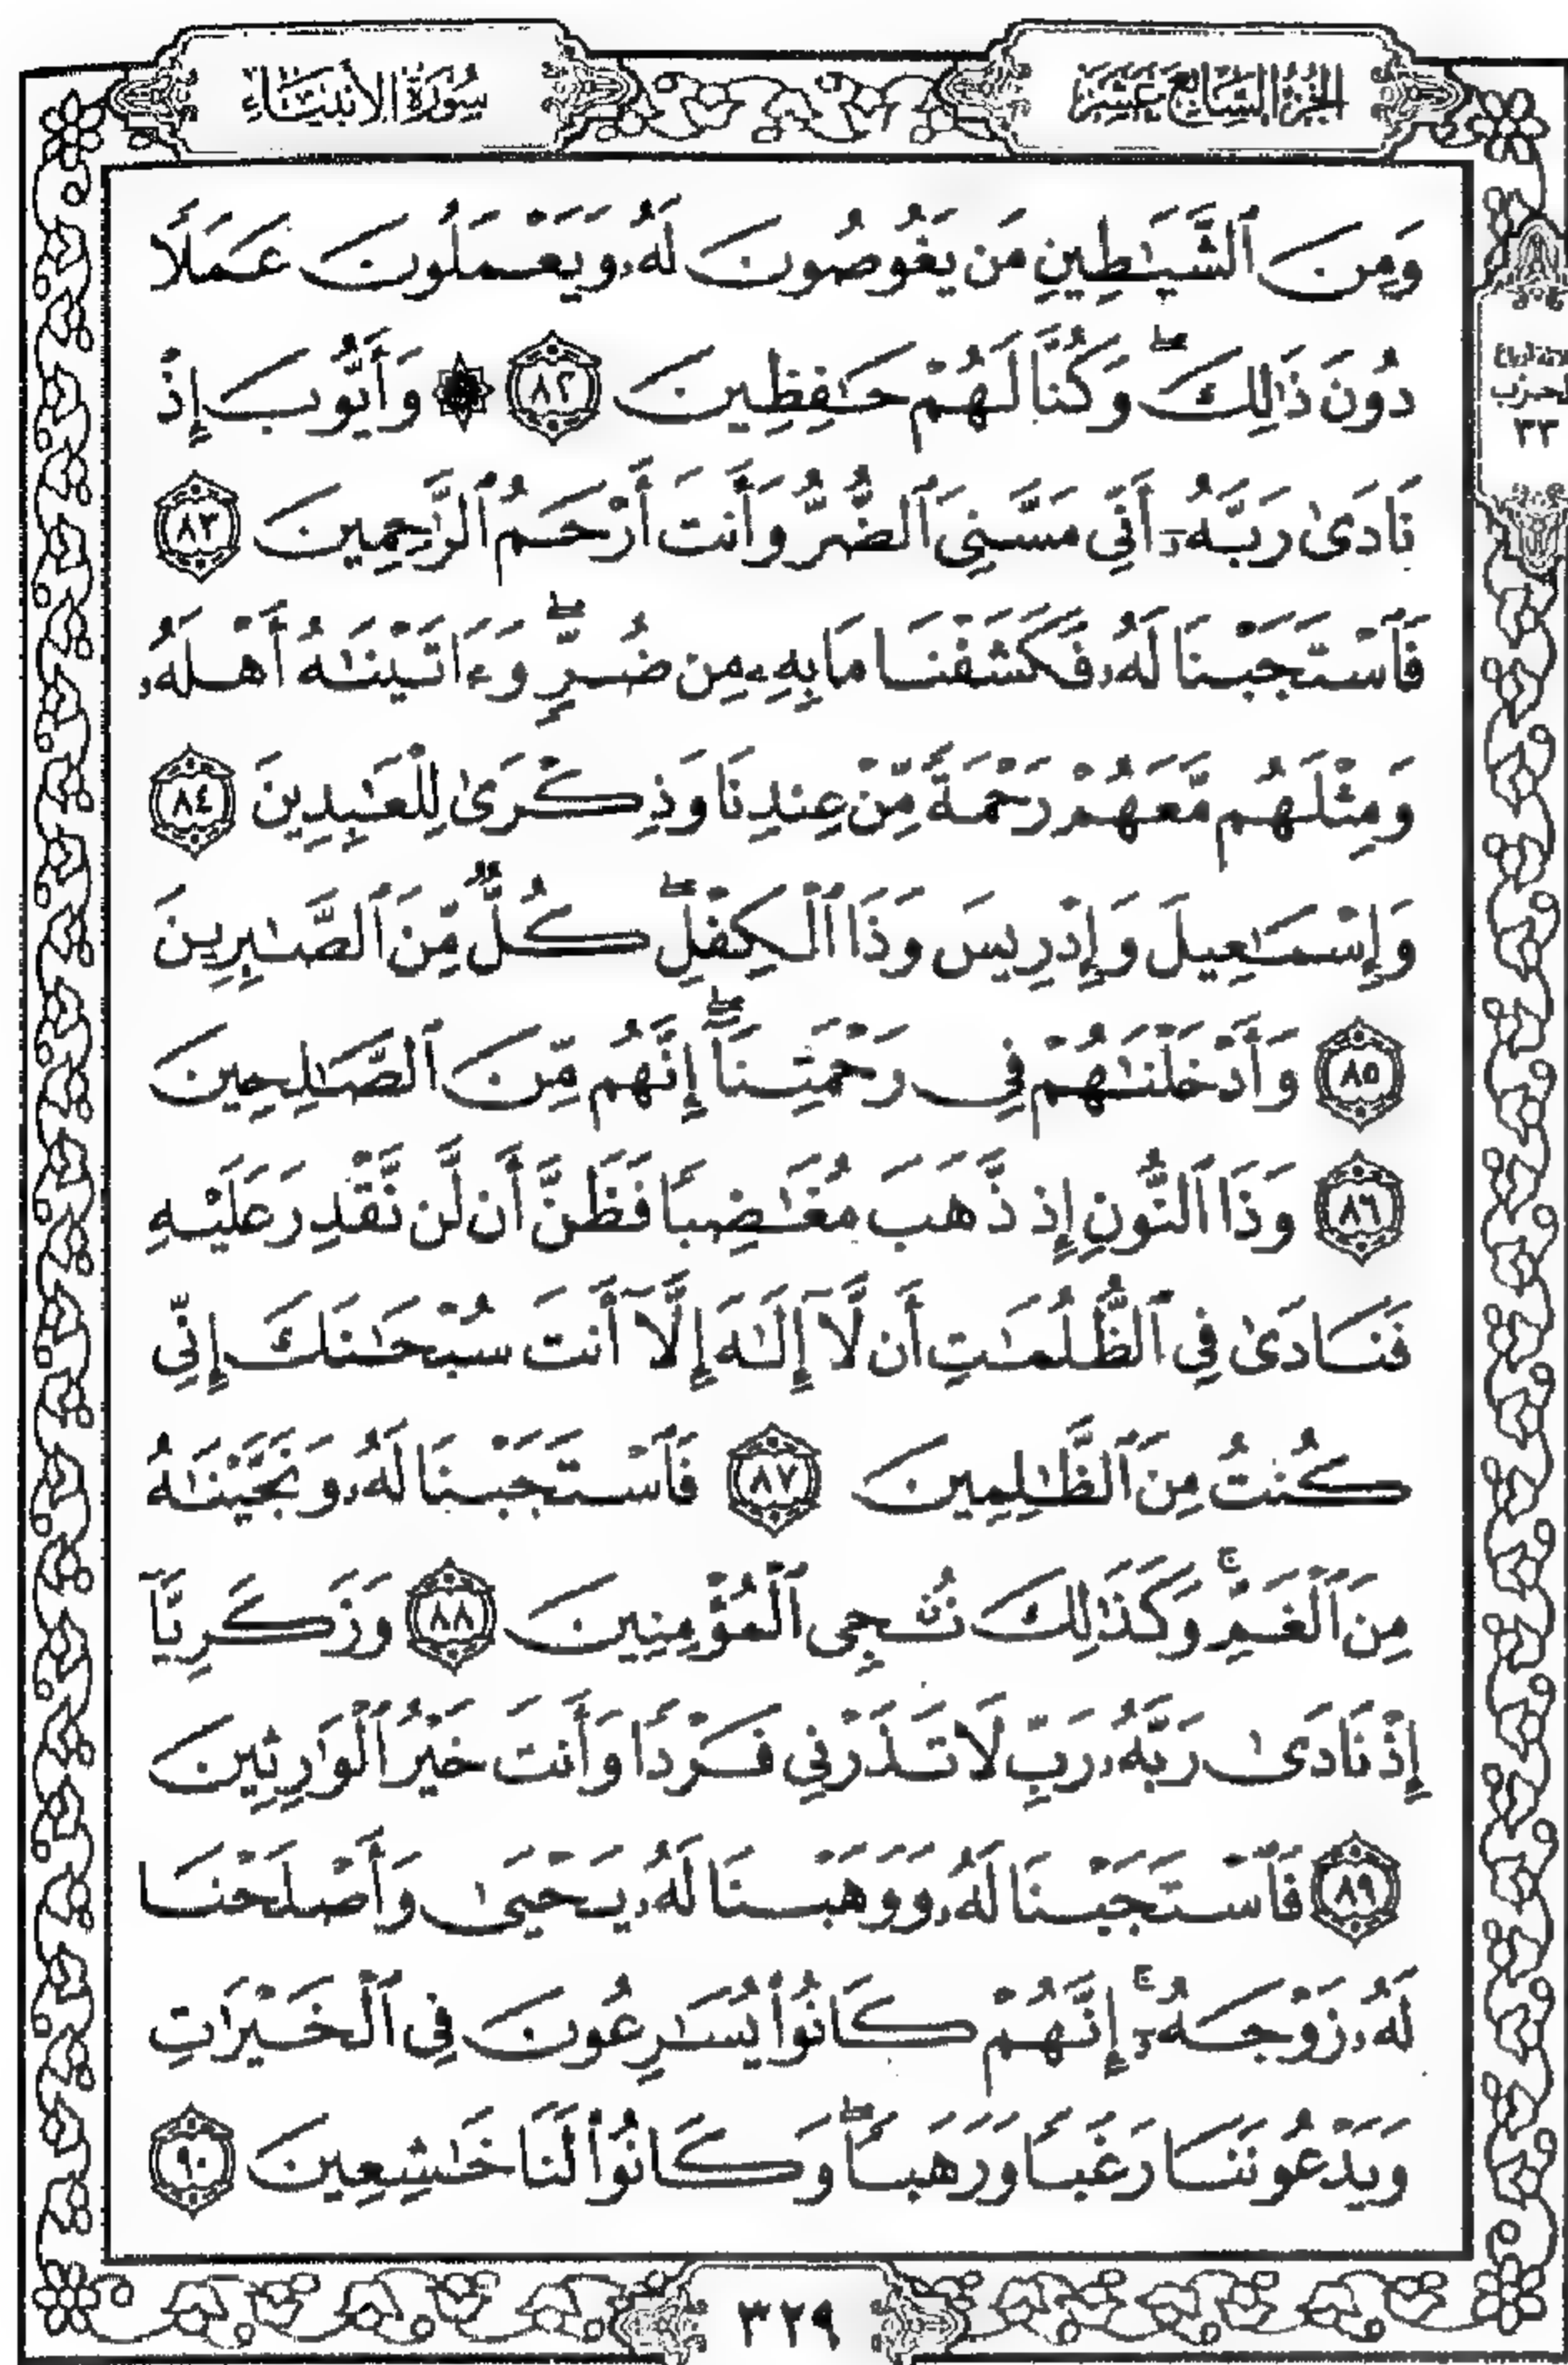 الجزء السابع عشر
سورة الأنبياء
وَمِنَ ٱلشَّيَٰطِينِ مَن يَغُوصُونَ لَهُۥ وَيَعْمَلُونَ عَمَلًا
دُونَ ذَٰلِكَ ۖ وَكُنَّا لَهُمْ حَٰفِظِينَ ٨٢ ۞ وَأَيُّوبَ إِذْ
نَادَىٰ رَبَّهُۥٓ أَنِّي مَسَّنِيَ ٱلضُّرُّ وَأَنتَ أَرْحَمُ ٱلرَّٰحِمِينَ ٨٣
فَٱسْتَجَبْنَا لَهُۥ فَكَشَفْنَا مَا بِهِۦ مِن ضُرٍّ ۖ وَءَاتَيْنَٰهُ أَهْلَهُۥ
وَمِثْلَهُم مَّعَهُمْ رَحْمَةً مِّنْ عِندِنَا وَذِكْرَىٰ لِلْعَٰبِدِينَ ٨٤
وَإِسْمَٰعِيلَ وَإِدْرِيسَ وَذَا ٱلْكِفْلِ ۖ كُلٌّ مِّنَ ٱلصَّٰبِرِينَ
٨٥ وَأَدْخَلْنَٰهُمْ فِي رَحْمَتِنَآ ۖ إِنَّهُم مِّنَ ٱلصَّٰلِحِينَ
٨٦ وَذَا ٱلنُّونِ إِذ ذَّهَبَ مُغَٰضِبًا فَظَنَّ أَن لَّن نَّقْدِرَ عَلَيْهِ
فَنَادَىٰ فِي ٱلظُّلُمَٰتِ أَن لَّآ إِلَٰهَ إِلَّآ أَنتَ سُبْحَٰنَكَ إِنِّي
كُنتُ مِنَ ٱلظَّٰلِمِينَ ٨٧ فَٱسْتَجَبْنَا لَهُۥ وَنَجَّيْنَٰهُ
مِنَ ٱلْغَمِّ ۚ وَكَذَٰلِكَ نُۨجِي ٱلْمُؤْمِنِينَ ٨٨ وَزَكَرِيَّآ
إِذْ نَادَىٰ رَبَّهُۥ رَبِّ لَا تَذَرْنِي فَرْدًا وَأَنتَ خَيْرُ ٱلْوَٰرِثِينَ
٨٩ فَٱسْتَجَبْنَا لَهُۥ وَوَهَبْنَا لَهُۥ يَحْيَىٰ وَأَصْلَحْنَا
لَهُۥ زَوْجَهُۥٓ ۚ إِنَّهُمْ كَانُوا۟ يُسَٰرِعُونَ فِي ٱلْخَيْرَٰتِ
وَيَدْعُونَنَا رَغَبًا وَرَهَبًا ۖ وَكَانُوا۟ لَنَا خَٰشِعِينَ ٩٠
حزب
٣٣
٣٢٩